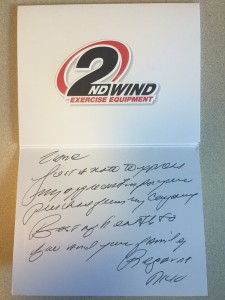 2ND WIND
EXERCISE EQUIPMENT
Just a note to express
my appreciation for your
purchase from my Company
Best of health to
you and your family
Regards